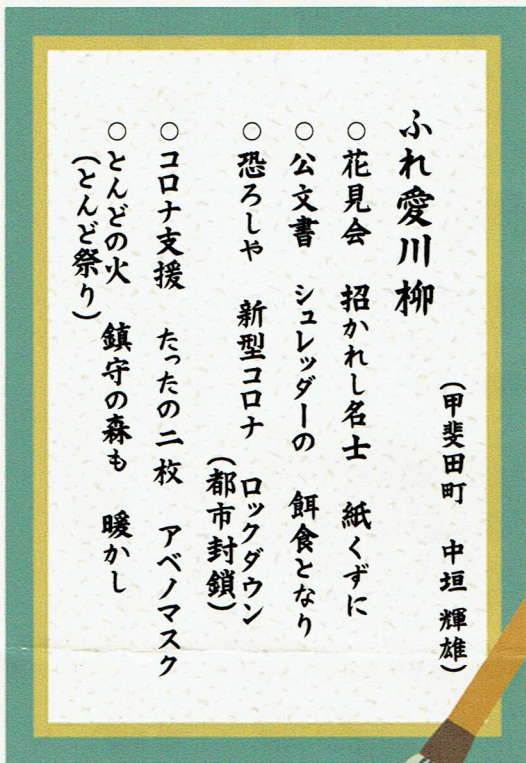 ふれ愛川柳
（甲斐田町　中垣 輝雄）
○ 花見会　招かれし名士　紙くずに
○ 公文書　シュレッダーの　餌食となり
○ 恐ろしや　新型コロナ　ロックダウン
（都市封鎖）
○ コロナ支援　たったの二枚　アベノマスク
○ とんどの火　鎮守の森も　暖かし
（とんど祭り）